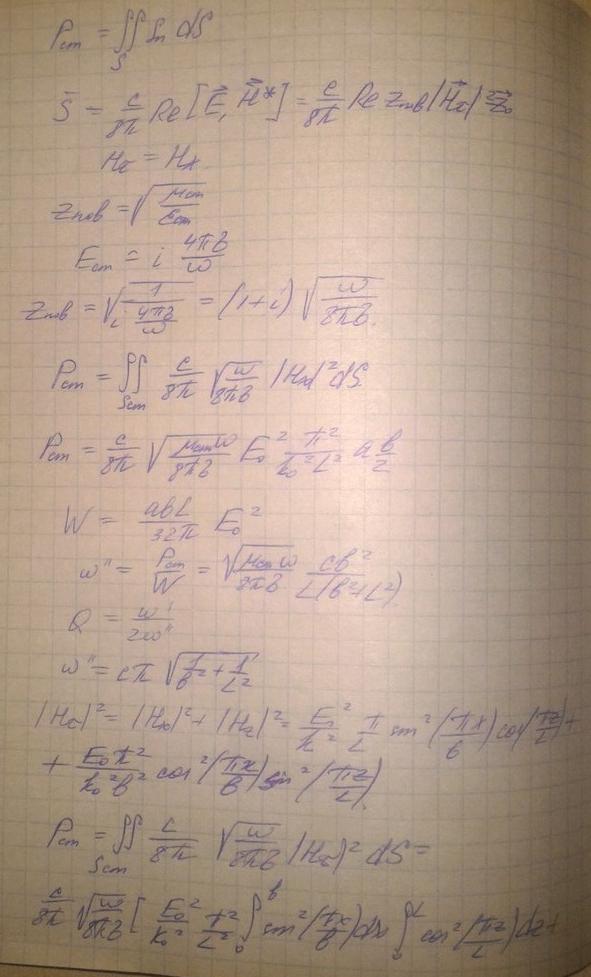 Pст = ∬_S Sn dS
S̄ = c/8π Re [E⃗, H⃗*] = c/8π Re Zпов |H⃗τ|² z⃗₀
Hτ = Hx
Zпов = √(μст/εст)
Eст = i 4πσ/ω
Zпов = √(1/(i 4πσ/ω)) = (1+i) √(ω/8πσ)
Pст = ∬_Sст c/8π √(ω/8πσ) |Hx|² dS
Pст = c/8π √(μстω/8πσ) E₀² π²/(k₀²L²) a b/2
W = abL/32π E₀²
ω'' = Pст/W = √(μстω/8πσ) cb²/(L(b²+L²))
Q = ω'/2ω''
ω'' = cπ √(1/b² + 1/L²)
|Hτ|² = |Hx|² + |Hz|² = E₀²/k² π/L sin²(πx/b) cos(πz/L) +
+ E₀π²/(k₀²b²) cos²(πx/b) sin²(πz/L)
Pст = ∬_Sст c/8π √(ω/8πσ) |Hτ|² dS =
c/8π √(ω/8πσ) [ E₀²/k₀² π²/L² ∫₀^b sin²(πx/b) dx ∫₀^L cos²(πz/L) dz +